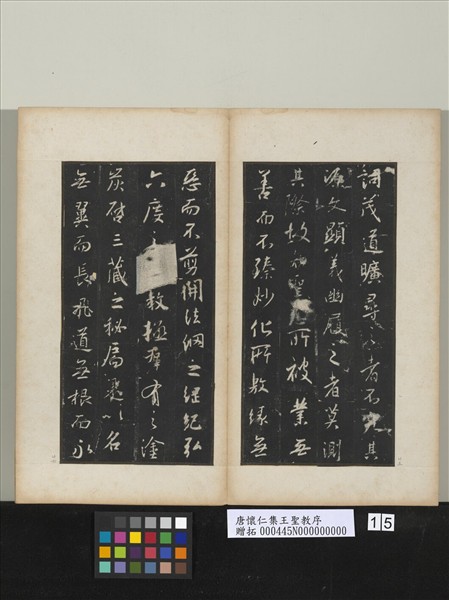 詞茂道曠尋之者不究其
源文顯義幽履之者莫測
其際故知聖慈所被業无
善而不臻妙化所敷緣无
惡而不剪開法網之綱紀弘
六度之教拯群有之塗
炭啓三藏之秘扃是以名
无翼而長飛道无根而永
唐懷仁集王聖教序
贈拓 000445N000000000
15